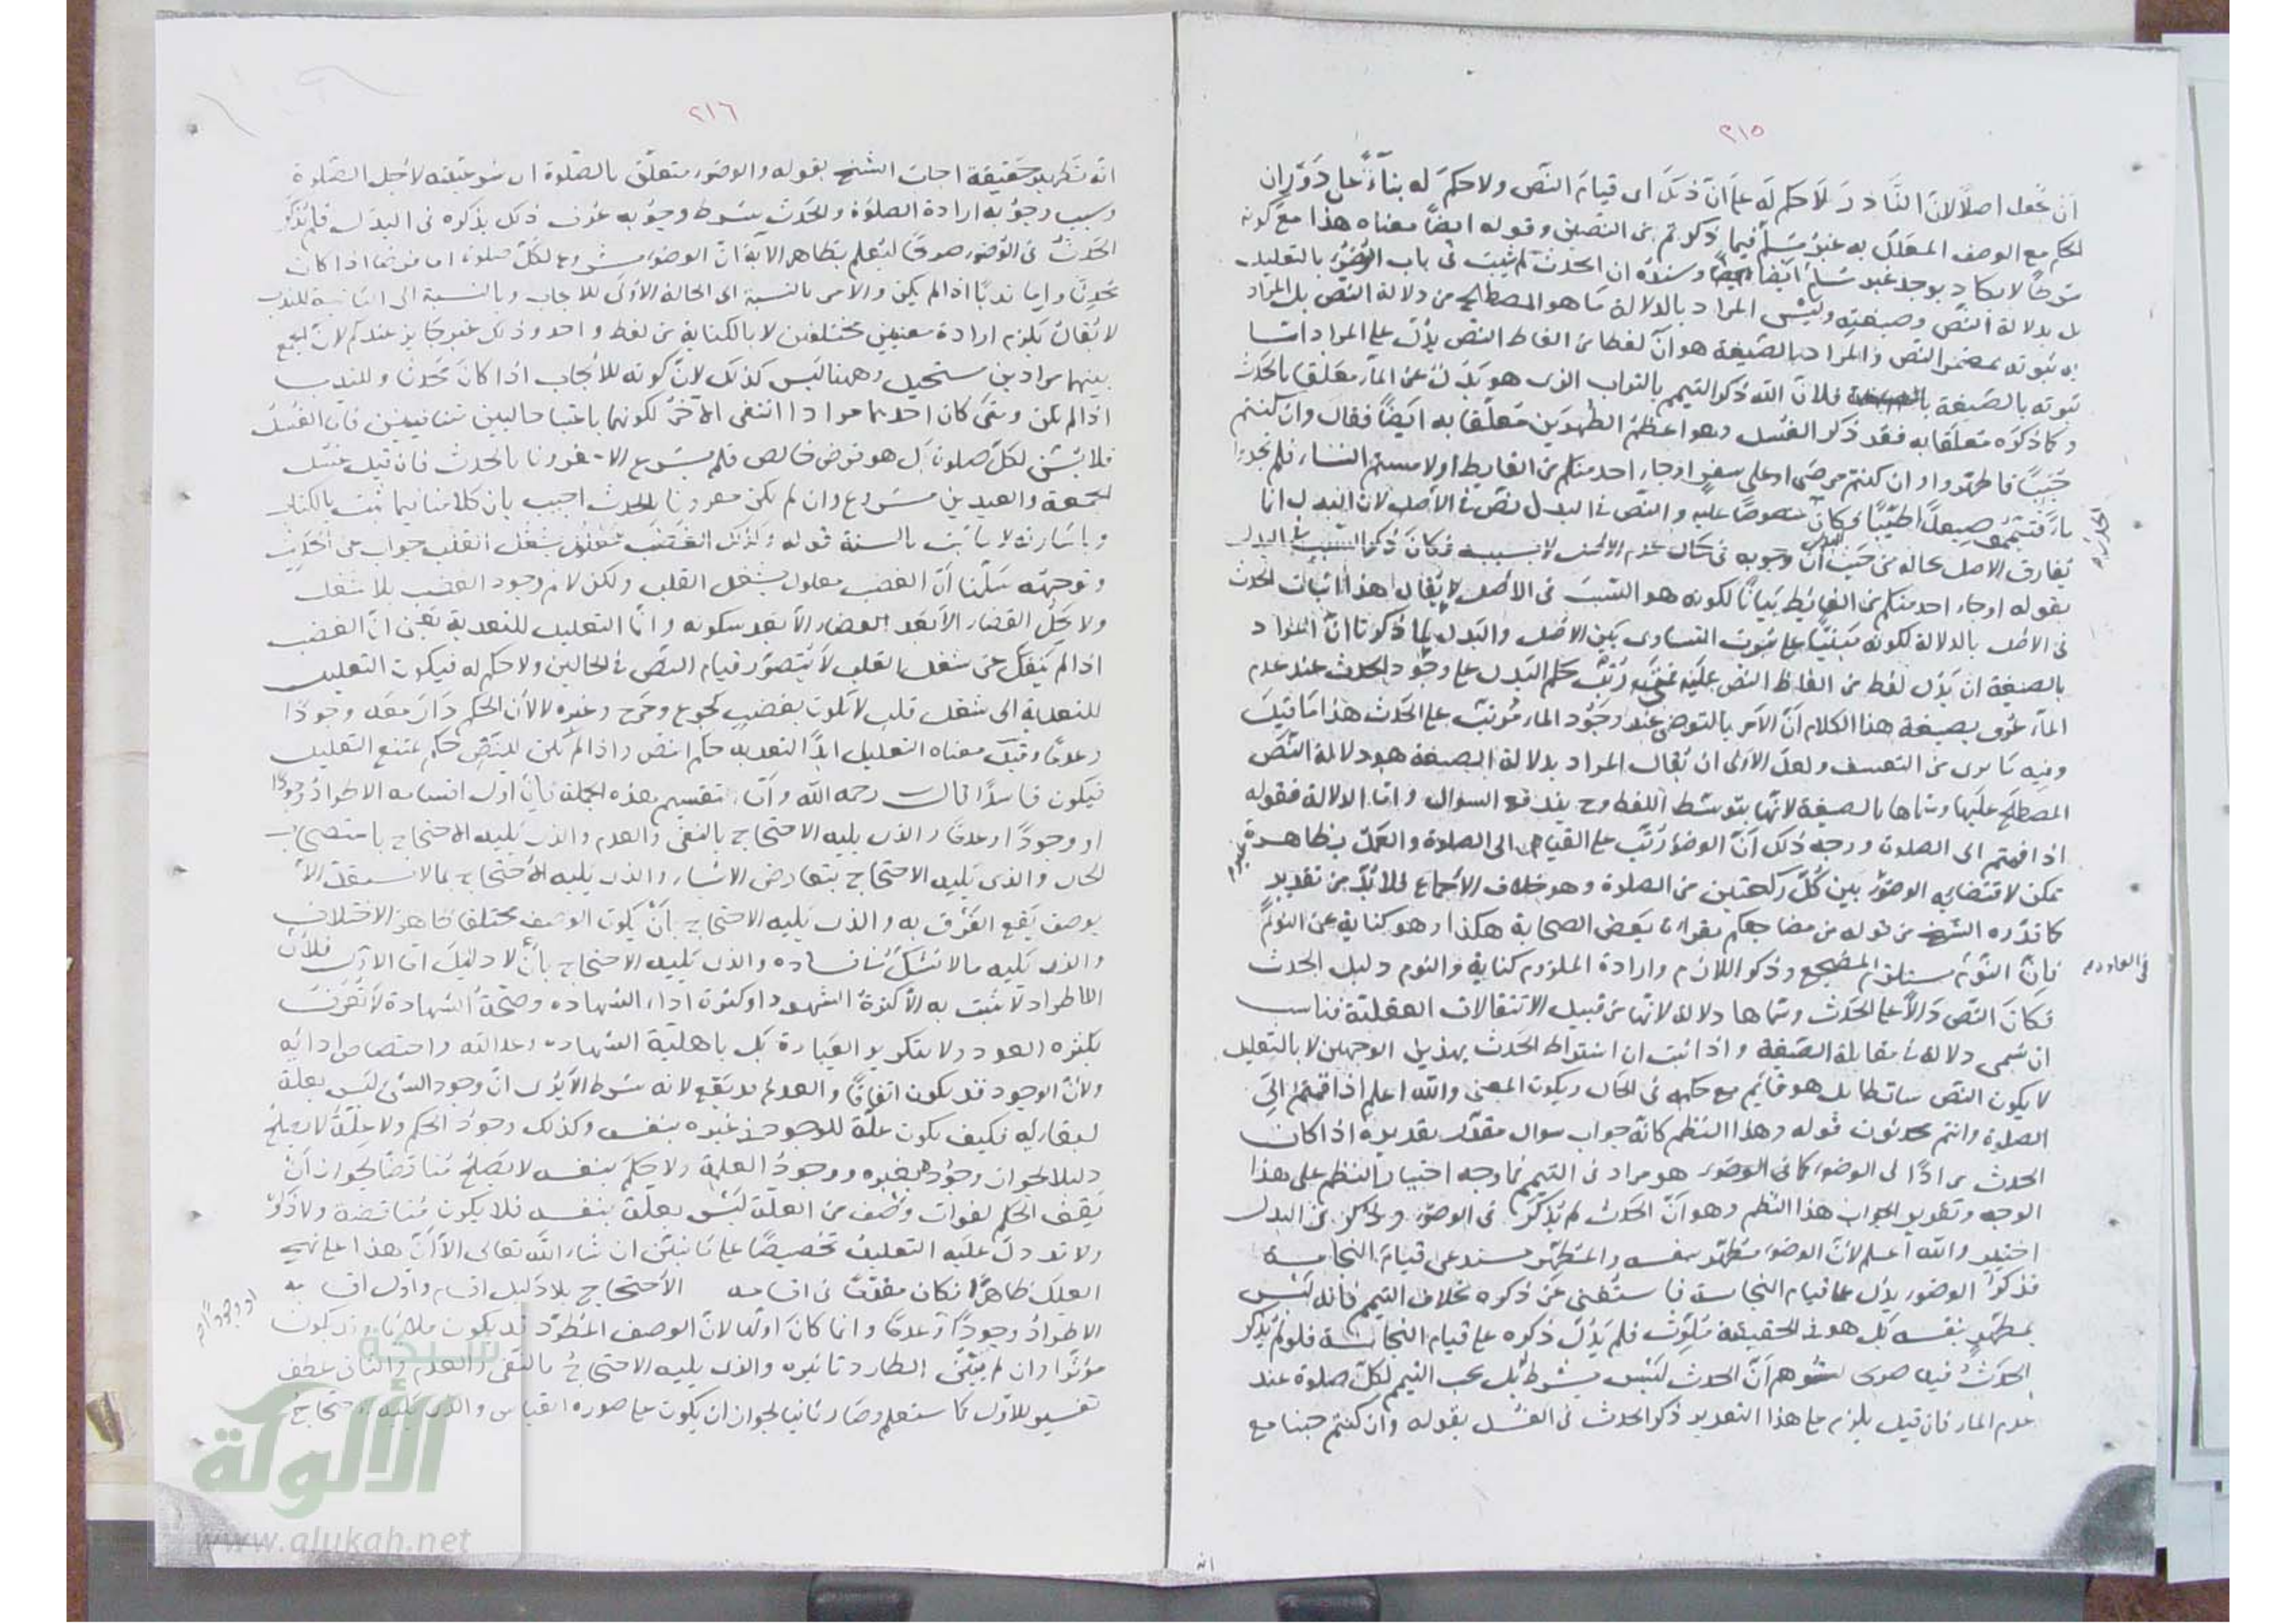 ٣١٥
ان يجعل اصلا لان النادر لا حكم له على ان ذلك اى قيام النص ولا حكم له بناءً على دوران
الحكم مع الوصف المعلل به غير مسلم فيما ذكرتم من النصين وقوله ايضا معناه هذا مع كونه
شرطا لا يكاد يوجد غير مسلم ايضا وسنده ان الحدث لم يثبت فى باب الوضوء بالتعليل
بل بدلالة النص وصيغته وليس المراد بالدلالة ما هو المصطلح من دلالة النص بل المراد
به ثبوته بمضمر النص والمراد بالصيغة هو ان لفظا من الفاظ النص يدل على المراد اما
ثبوته بالصيغة فلان الله ذكر التيمم بالتراب الذى هو بدل عن الماء معلقا بالحدث
وكما ذكره متعلقا به فقد ذكر الغسل وهو اعظم الطهرين معلقا به ايضا فقال وان كنتم
جنبا فاطهروا وان كنتم مرضى او على سفر او جاء احد منكم من الغايط او لامستم النساء فلم تجدوا
ماء فتيمموا صعيدا طيبا فكان منصوصا عليه والنص فى البدل نص فى الاصل لان البدل انما
يفارق الاصل بحاله من حيث ان وجوبه فى حال عدم الاصل لا بسببه فكان ذكر السبب فى البدل
بقوله او جاء احد منكم من الغائط بيانا لكونه هو السبب فى الاصل لا يقال هذا اثبات الحدث
فى الاصل بالدلالة لكونه مبنيا على ثبوت التساوى بين الاصل والبدل لما ذكرنا ان المراد
بالصيغة ان يدل لفظ من الفاظ النص عليه رتب حكم البدل على وجود الحدث عند عدم
الماء عرف بصيغة هذا الكلام ان الامر بالتوضى عند وجود الماء مرتب على الحدث هذا ما قيل
وفيه ما يرى من التعسف ولعل الاولى ان يقال المراد بدلالة الصيغة هو دلالة النص
المصطلح عليها وسماها بالصيغة لانها بتوسط اللفظ وح يندفع السوال واما الدلالة فقوله
اذا قمتم الى الصلوة ووجه ذلك ان الوضوء رتب على القيام الى الصلوة والعمل بظاهره غير
ممكن لاقتضائه الوضوء بين كل ركعتين من الصلوة وهو خلاف الاجماع فلا بد من تقدير
كما قدره الشيخ من قوله من مضاجعكم بقراءة بعض الصحابة هكذا وهو كناية عن النوم
فان النوم يستلزم المضجع وذكر اللازم وارادة الملزوم كناية والنوم دليل الحدث
فكان النص دالا على الحدث وسماها دلالة لانها من قبيل الانتقالات العقلية فناسب
ان تسمى دلالة فى مقابلة الصيغة واذا ثبت ان اشتراط الحدث بهذين الوجهين لا بالتعليل
لا يكون النص ساقطا بل هو قايم مع حكمه فى الحال ويكون المعنى والله اعلم اذا قمتم الى
الصلوة وانتم محدثون قوله وهذا النظم كانه جواب سوال مقدر تقديره اذا كان
الحدث مرادا فى الوضوء كما فى الوضوء هو مراد فى التيمم فما وجه اختيار النظم على هذا
الوجه وتقرير الجواب هذا النظم وهو ان الحدث لم يذكر فى الوضوء وذكر فى البدل
اختير والله اعلم لان الوضوء مطهر بنفسه والمتطهر يستدعى قيام النجاسة
فذكر الوضوء يدل على قيام النجاسة فاستغنى عن ذكره بخلاف التيمم فانه ليس
بمطهر بنفسه بل هو فى الحقيقة ملوث فلم يدل ذكره على قيام النجاسة فلو لم يذكر
الحدث فيه صريحا لتوهم ان الحدث ليس بشرط بل يجب التيمم لكل صلوة عند
عدم الماء فان قيل يلزم على هذا التقدير ذكر الحدث فى الغسل بقوله وان كنتم جنبا مع
انه
٣١٦
انه تطهير حقيقة اجاب الشيخ بقوله والوضوء متعلق بالصلوة اى شرعيته لاجل الصلوة
وسبب وجوبه ارادة الصلوة والحدث شرط وجوبه عرف ذلك بذكره فى البدل فلم يذكر
الحدث فى الوضوء صريحا ليعلم بظاهر الآية ان الوضوء مشروع لكل صلوة اما فرضا اذا كان
محدثا واما ندبا اذا لم يكن والامر بالنسبة الى الحالة الاولى للايجاب وبالنسبة الى الثانية للندب
لا يقال يلزم ارادة معنيين مختلفين لا بالكناية من لفظ واحد وذلك غير جايز عندكم لان الجمع
بينهما مرادين مستحيل وههنا ليس كذلك لان كونه للايجاب اذا كان محدثا وللندب
اذا لم يكن ومتى كان احدهما مرادا انتفى الآخر لكونهما باعتبار حالين متنافيين فان الغسل
فلا يسن لكل صلوة بل هو فرض خالص فلم يشرع الا مقرونا بالحدث فان قيل غسل
الجمعة والعيدين مشروع وان لم يكن مقرونا بالحدث اجيب بان كلامنا فيما ثبت بالكتاب
وباشارته لا بما ثبت بالسنة قوله وكذلك الغضب معلول بشغل القلب جواب عن الحديث
وتوجيهه سلمنا ان الغضب معلول بشغل القلب ولكن لا نم وجود الغضب بلا شغل
ولا يحل القضاء الا بعد سكونه وانما التعليل للتعدية يعنى ان الغضب
اذا لم ينفك عن شغل القلب لا يتصور قيام النص فى الحالين ولا حكم له فيكون التعليل
للتعدية الى شغل قلب لا يكون بغضب كجوع وجرح وغيره لا لان الحكم دار معه وجودا
وعدما وقيل معناه التعليل ابدا لتعدية حكم النص واذا لم يكن للنص حكم يمتنع التعليل
فيكون فاسدا قال رحمه الله واما تقسيم هذه الجملة فان اول اقسامه الاطراد وجودا
او وجودا وعدما والذى يليه الاحتجاج بالنفى والعدم والذى يليه الاحتجاج باستصحاب
الحال والذى يليه الاحتجاج بتعارض الاشباه والذى يليه الاحتجاج بما لا يستقل الا
بوصف يقع الفرق به والذى يليه الاحتجاج بان يكون الوصف مختلفا ظاهر الاختلاف
والذى يليه ما لا يشك فى فساده والذى يليه الاحتجاج بان لا دليل اما الاول فلان
الاطراد لا يثبت به الا كثرة الشهود او كثرة اداء الشهادة وصحة الشهادة لا تعرف
بكثرة العدد ولا بتكرير العبارة بل باهلية الشهادة وعدالته واختصاص ادائه
ولان الوجود قد يكون اتفاقا والعدم قد يقع لانه شرط الا يرى ان وجود الشئ ليس بعلة
لبقائه فكيف يكون علة للوجود فى غيره بنفسه وكذلك وجود الحكم ولا علة لا يصلح
دليلا لجواز وجوده بغيره ووجود العلة ولا حكم بنفسه لا يصلح مناقضا لجواز ان
يقف الحكم لفوات وصف من العلة ليس بعلة بنفسه فلا يكون مناقضة ولا ذكر
ولا قد دل عليه التعليل تخصيصا على ما نبين ان شاء الله تعالى الا ان هذا على نهج
العلل ظاهرا فكان مقدما فى اقسامه الاحتجاج بلا دليل اقسام واول اقسامه
الاطراد وجودا وعدما وانما كان اولها لان الوصف المطرد قد يكون ملائما وقد يكون
مؤثرا وان لم يبين الطارد تاثيره والذى يليه الاحتجاج بالنفى والعدم والثانى عطف
تفسير للاول كما ستعلم وصار ثانيا لجواز ان يكون على صورة القياس والذى يليه الاحتجاج
شبكة
الألوكة
www.alukah.net